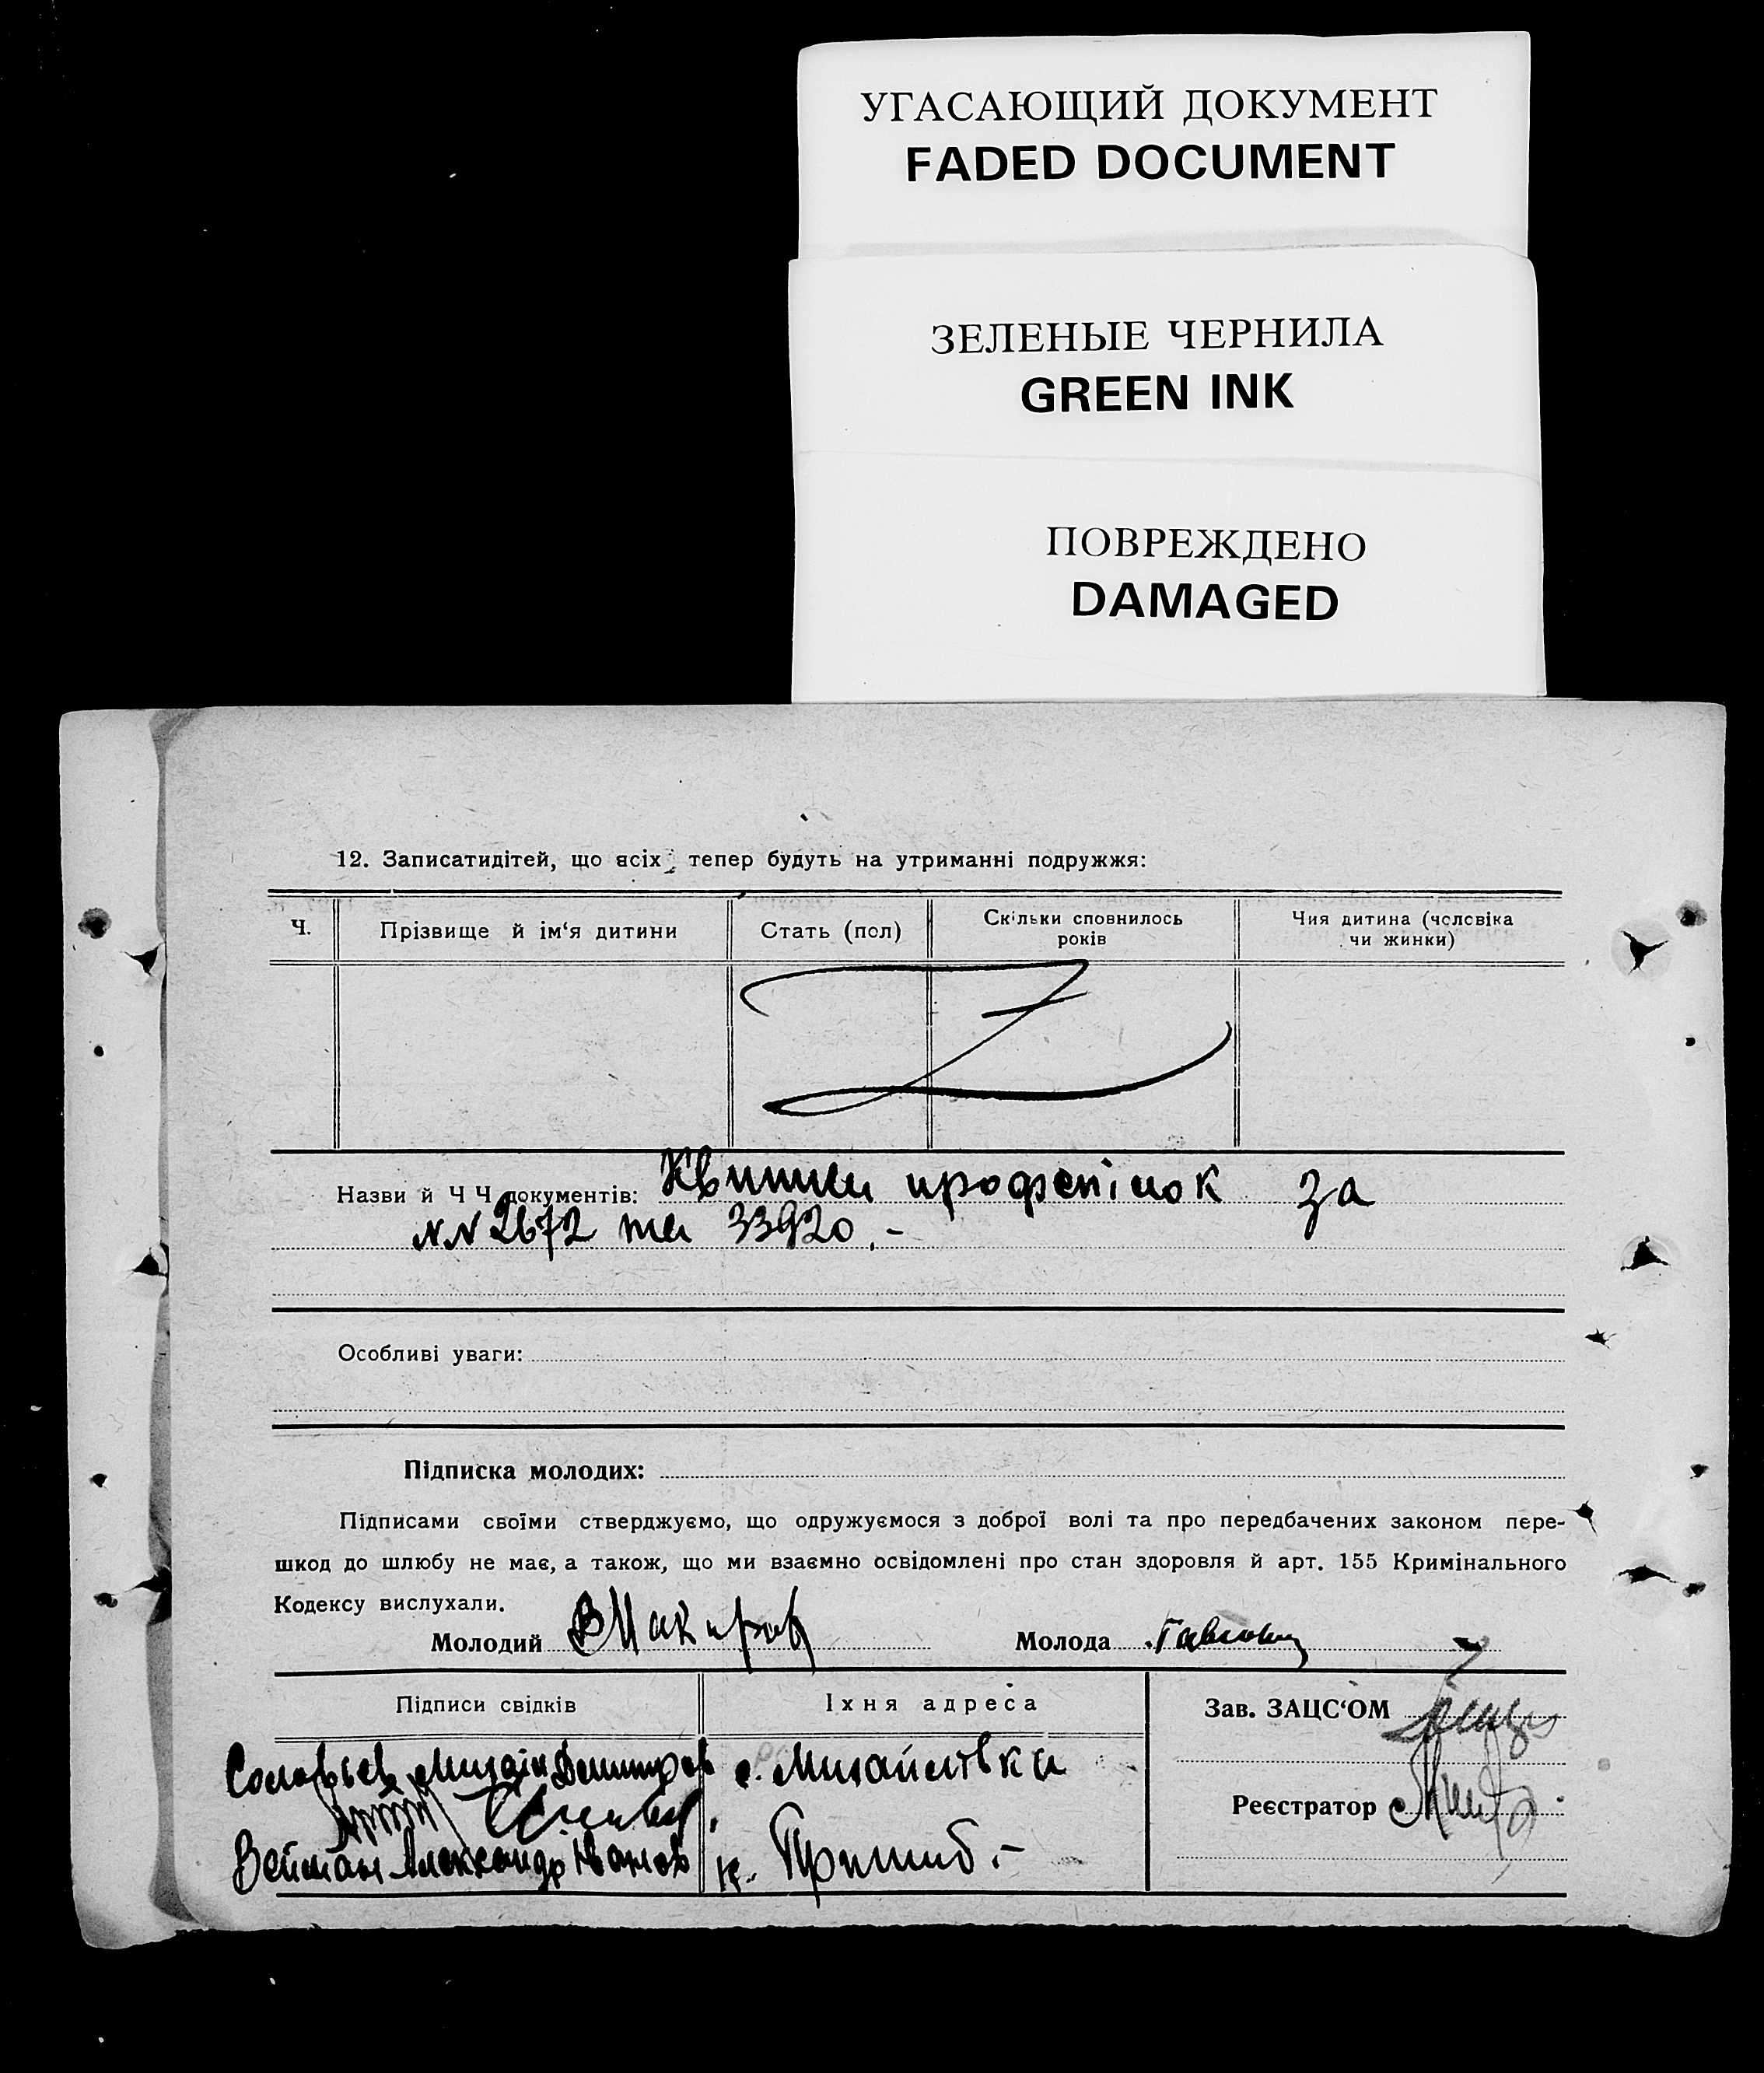 УГАСАЮЩИЙ ДОКУМЕНТ
FADED DOCUMENT
ЗЕЛЕНЫЕ ЧЕРНИЛА
GREEN INK
ПОВРЕЖДЕНО
DAMAGED
12. Записатидітей, що всіх тепер будуть на утриманні подружжя:
Ч. Прізвище й ім‘я дитини Стать (пол) Скільки сповнилось років Чия дитина (чсловіка чи жинки)
Назви й Ч Ч документів: Квитки профспілок за
№№ 2672 та 33920.-
Особливі уваги:
Підписка молодих:
Підписами своїми стверджуємо, що одружуємося з доброї волі та про передбачених законом пере-
шкод до шлюбу не має, а також, що ми взаємно освідомлені про стан здоровля й арт. 155 Кримінального
Кодексу вислухали.
Молодий ВМакаров Молода
Підписи свідків Їхня адреса Зав. ЗАЦС‘ОМ
Соловьев Михаїл Дмитров с. Михайлівка
Реєстратор
Вейман Александр Иванов к. Пришиб.-